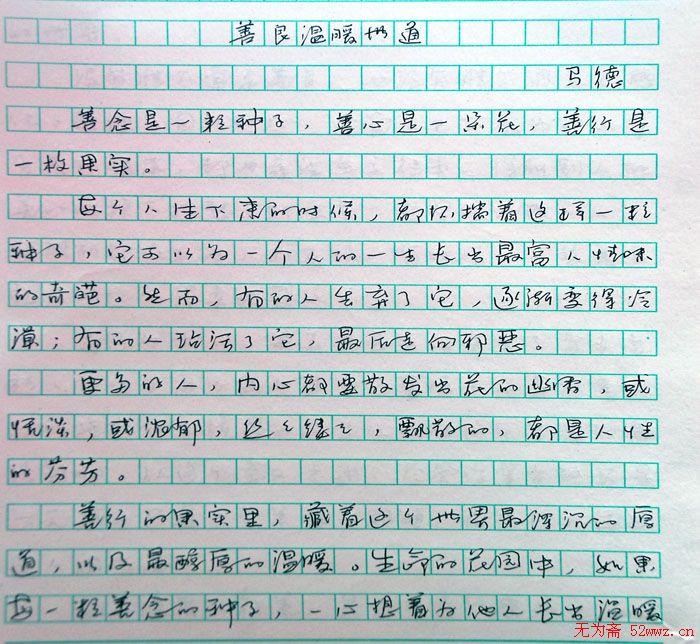 善良温暖世道
马德
善念是一粒种子，善心是一朵花，善行是
一枚果实。
每个人生下来的时候，都怀揣着这样一粒
种子，它可以为一个人的一生长出最富人情味
的奇葩。然而，有的人丢弃了它，逐渐变得冷
漠；有的人玷污了它，最后走向邪恶。
更多的人，内心都要散发出花的幽香，或
恬淡，或浓郁，丝丝缕缕，飘散的，都是人性
的芬芳。
善行的果实里，藏着这个世界最深沉的厚
道，以及最醇厚的温暖。生命的花园中，如果
每一粒善念的种子，一心想着为他人长出温暖
无为斋 52wwz.cn